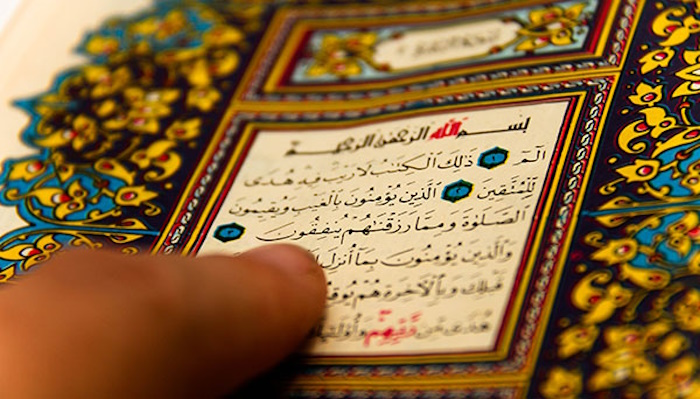 بِسْمِ اللَّهِ الرَّحْمٰنِ الرَّحِيمِ
الٓمٓ ١ ذٰلِكَ الْكِتٰبُ لَا رَيْبَ فِيهِ هُدًى
لِلْمُتَّقِينَ ٢ الَّذِينَ يُؤْمِنُونَ بِالْغَيْبِ وَيُقِيمُونَ
الصَّلٰوةَ وَمِمَّا رَزَقْنٰهُمْ يُنْفِقُونَ ٣
وَالَّذِينَ يُؤْمِنُونَ بِمَا أُنْزِلَ
قَبْلِكَ وَبِالْاٰخِرَةِ هُمْ
هُدًى مِنْ رَبِّهِمْ